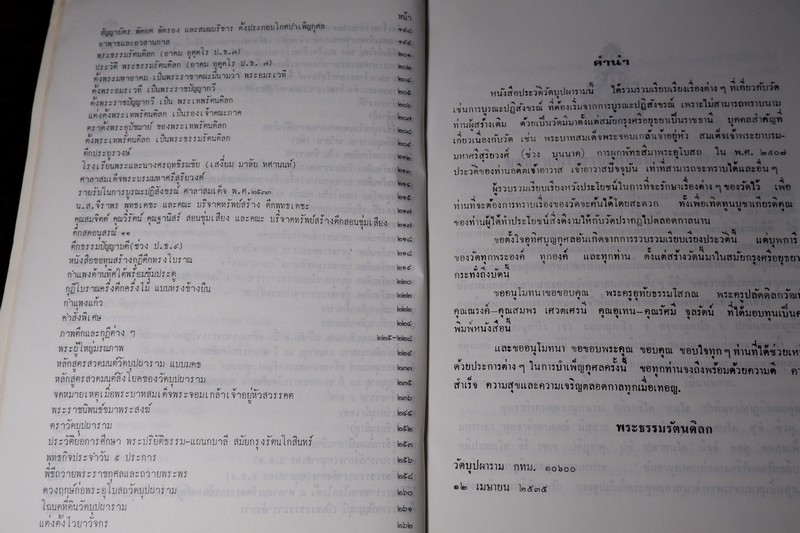 หน้า
สัญญาบัตร พัดยศ พัดรอง และสมณบริขาร ตั้งประกอบโกศบำเพ็ญกุศล ๑๙๘
อาพาธและอวสานกาล ๑๙๙
พระธรรมรัตนดิลก (อาคม อุตฺตโร ป.ธ.๗) ๒๐๑
ประวัติ พระธรรมรัตนดิลก (อาคม อุตฺตโร ป.ธ.๗) ๒๐๒
ตั้งพระมหาอาคม เป็นพระราชาคณะมีนามว่า พระอมรเวที
ตั้งพระอมรเวที เป็นพระราชปัญญากวี ๒๐๕
ตั้งพระราชปัญญากวี เป็น พระเทพรัตนดิลก ๒๐๖
แต่งตั้งพระเทพรัตนดิลก เป็นรองเจ้าคณะภาค
ตราตั้งพระอุปัชฌาย์ ของพระเทพรัตนดิลก
ตั้งพระเทพรัตนดิลก เป็นพระธรรมรัตนดิลก
ตึกประยูรวงษ์ ๒๑๒
โรงเรียนพระและนางศรฤทธิรณชัย (เสงี่ยม มาลัย ทศานนท์) ๒๑๓
ศาลาสมเด็จพระบรมมหาศรีสุริยวงศ์
รายรับในการบูรณะปฏิสังขรณ์ ศาลาสมเด็จ พ.ศ.๒๕๓๓
น.ส.จีราพร พุทธเดชะ และคณะ บริจาคทรัพย์สร้าง ตึกพุทธเดชะ
คุณสมจิตต์ คุณวีรัตน์ คุณฐานิสร์ สอนชุ่มเสียง และคณะ บริจาคทรัพย์สร้างตึกสอนชุ่มเสียง ๒๑๗
ตึกสตอนุสรณ์ ๑๑ ๒๑๘
ตึกธรรมปัญญาบดี(ช่วง ป.ธ.๙) ๒๑๘
หนังสือขอทุนสร้างกุฏิตึกทรงโบราณ ๒๑๙
กำแพงด้านทิศใต้พร้อมซุ้มประตู
กุฏิโบราณครึ่งตึกครึ่งไม้ แบบทรงช้างยืน ๒๒๐
กำแพงแก้ว ๒๒๒
คำสั่งพิเศษ ๒๒๔
ภาพตึกและกุฏิต่าง ๆ ๒๒๕-๒๒๘
พระผู้ใหญ่มรณภาพ
หลักสูตรสวดมนต์วัดบุปผาราม แบบมคธ ๒๒๘
หลักสูตรสวดมนต์สังโยคของวัดบุปผาราม ๒๓๕
จดหมายเหตุเมื่อพระบาทสมเด็จพระจอมเกล้าเจ้าอยู่หัวสวรรคต
พระราชนิพนธ์ขมาพระสงฆ์ ๒๔๑
ตราวัดบุปผาราม ๒๕๒
ประวัติย่อการศึกษา พระปริยัติธรรม-แผนกบาลี สมัยกรุงรัตนโกสินทร์ ๒๕๓
พุทธกิจประจำวัน ๕ ประการ ๒๕๖
พิธีถวายพระราชกุศลและถวายพระพร ๒๕๘
ดวงฤกษ์ก่อพระอุโบสถวัดบุปผาราม ๒๖๐
โฉนดที่ดินวัดบุปผาราม ๒๖๑
แต่งตั้งไวยาวัจกร ๒๖๒
คำนำ
หนังสือประวัติวัดบุปผารามนี้ ได้รวบรวมเรียบเรียงเรื่องต่างๆ ที่เกี่ยวกับวัด
เช่นการบูรณะปฏิสังขรณ์ ที่ต้องเริ่มจากการบูรณะปฏิสังขรณ์ เพราะไม่สามารถทราบนาม
ท่านผู้สร้างเดิม ด้วยเป็นวัดมาตั้งแต่สมัยกรุงศรีอยุธยาเป็นราชธานี บุคคลสำคัญที่
เกี่ยวเนื่องกับวัด เช่น พระบาทสมเด็จพระจอมเกล้าเจ้าอยู่หัว สมเด็จเจ้าพระยาบรม-
มหาศรีสุริยวงศ์ (ช่วง บุนนาค) การผูกพัทธสีมาพระอุโบสถ ใน พ.ศ. ๒๕๐๗
ประวัติของท่านอดีตเจ้าอาวาส เจ้าอาวาสปัจจุบัน เท่าที่สามารถจะทราบได้และอื่นๆ
ผู้รวบรวมเรียบเรียงหวังประโยชน์ในการที่จะรักษาเรื่องต่างๆ ของวัดไว้ เพื่อ
ท่านที่จะต้องการทราบเรื่องของวัดจะค้นได้โดยสะดวก ทั้งเพื่อเทิดทูนบูชาเกียรติคุณ
ของท่านผู้ได้ทำประโยชน์สิ่งดีงามให้กับวัดปรากฏไปตลอดกาลนาน
ขอตั้งใจอุทิศบุญกุศลอันเกิดจากการรวบรวมเรียบเรียงประวัตินี้ แด่บุพการี
ของวัดทุกพระองค์ ทุกองค์ และทุกท่าน ตั้งแต่สร้างวัดนี้มาในสมัยกรุงศรีอยุธยา
กระทั่งถึงบัดนี้
ขออนุโมทนาขอขอบคุณ พระครูอุทัยธรรมโสภณ พระครูปลัดดิลกวัฒน์
คุณณรงค์-คุณสมพร เศวตเศรนี คุณอุเทน-คุณรัศมี จูลรัตน์ ที่ได้มอบทุนเป็นค่า
พิมพ์หนังสือนี้
และขออนุโมทนา ขอขอบพระคุณ ขอบคุณ ขอบใจทุกๆ ท่านที่ได้ช่วยเห
ด้วยประการต่างๆ ในการบำเพ็ญกุศลครั้งนี้ ขอทุกท่านจงถึงพร้อมด้วยความดี
สำเร็จ ความสุขและความเจริญตลอดกาลทุกเมื่อเทอญ.
พระธรรมรัตนดิลก
วัดบุปผาราม กทม. ๑๐๖๐๐
๑๒ เมษายน ๒๕๓๕